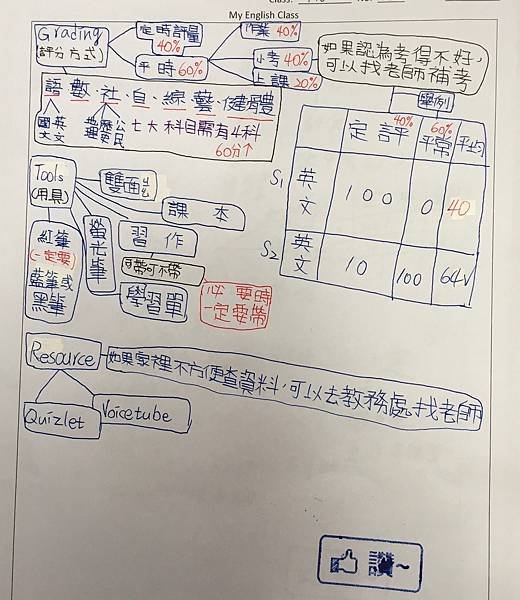 Class:
No:
My English Class
Grading
(評分方式)
定時評量
40%
平時60%
作業 40%
小考 40%
上課 20%
如果認為考得不好,
可以找老師補考
語 數、社、自、綜、藝、健體
國文 英文 地理 歷史 公民 七大科目需有4科
60分↑
舉例
40% 60%
定評 平常 平均
S1 英文 100 0 40
S2 英文 10 100 64√
Tools
(用具)
雙面
課本
習作
可帶可不帶
學習單
必要時
一定要帶
螢光筆
紅筆
(一定要)
藍筆或
黑筆
Resource
如果家裡不方便查資料,可以去教務處找老師
Quizlet
Voicetube
讚~